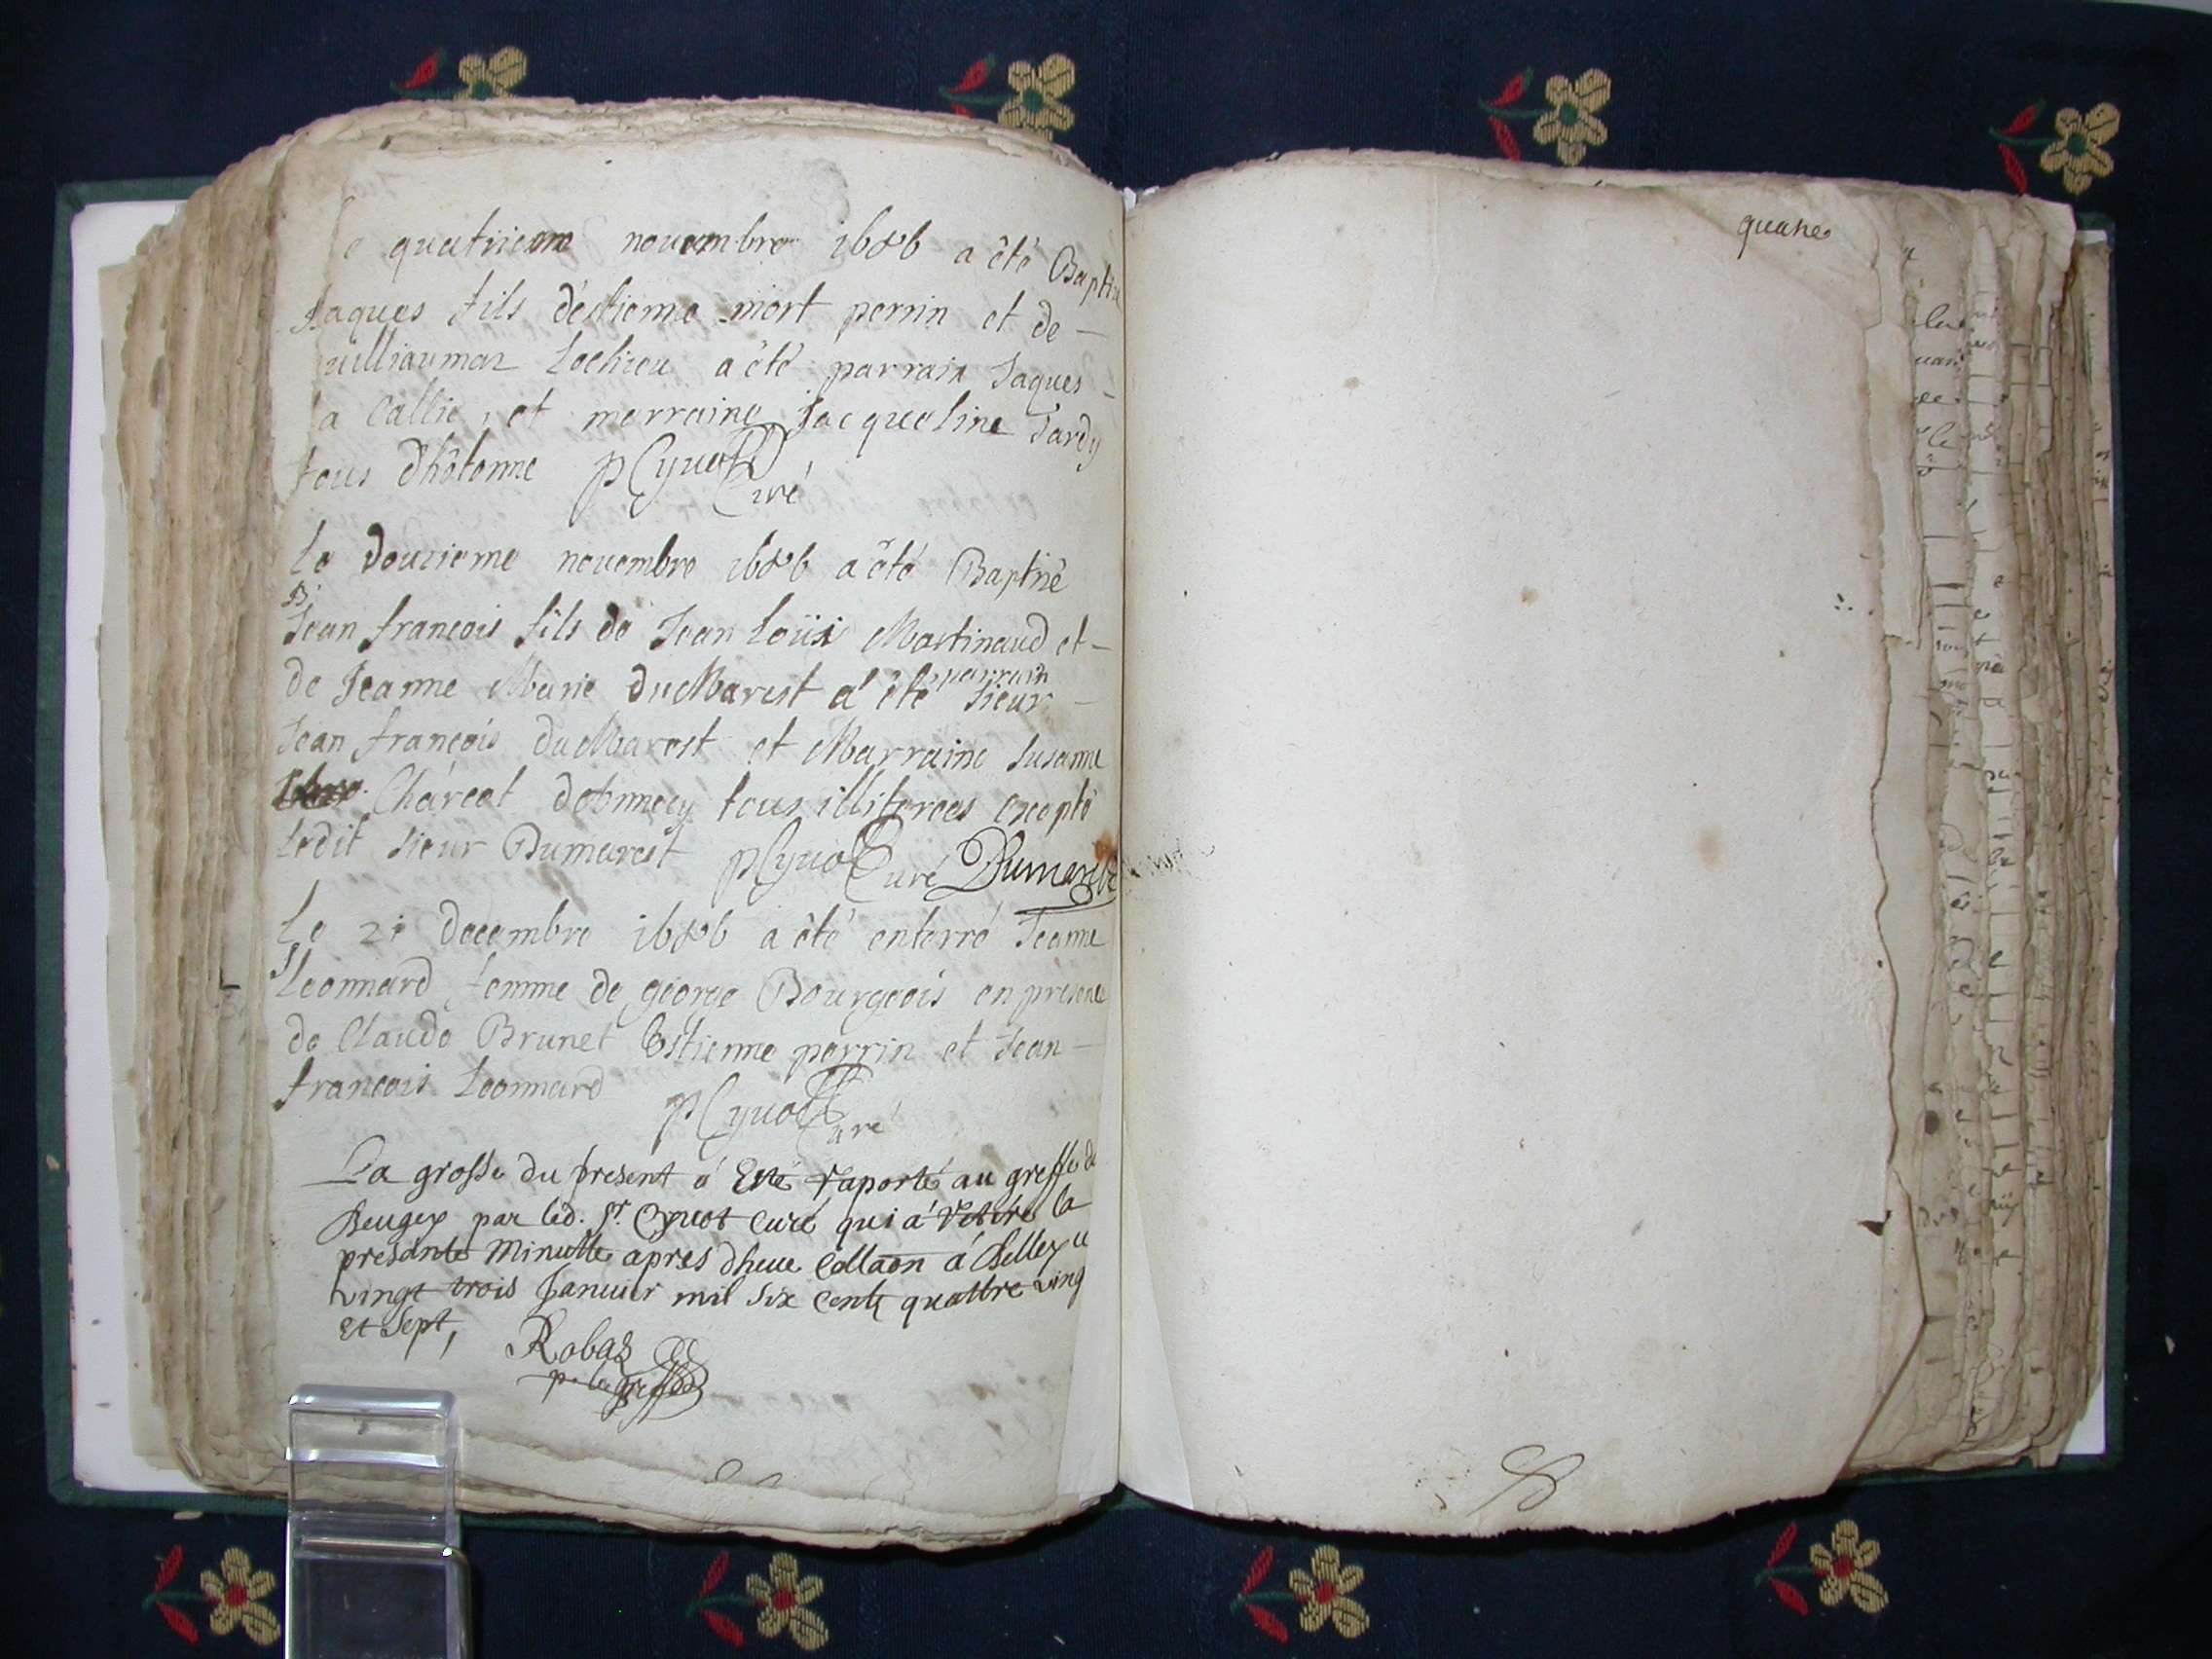 Le quatriem nouembre 1686 a êté Baptise
Jaques fils d'éstienne mort perrin et de -
uilliaumaz Lochieu a êté parrain Jaques -
La Callie, et marraine Jacqueline Tardy
tous d'hôtonne p Cyuot Curé
Le douzieme nouembre 1686 a êté Baptisé
B.
Jean françois fils de Jean Loüis Martinaud et -
de Jeanne Marie du Marest a été parrain Sieur -
Jean françois du Marest et Marraine Susanne
Charcot tous illiterees excepté
Ledit Sieur Dumarest p Cyuot Curé Dumarest
Le 21 decembre 1686 a êté enterré Jeanne
Leonnard femme de george Bourgeois en presence
de Claude Brunet Estienne perrin et Jean -
francois Leonnard
p Cyuot Curé
La grosse du present a Esté raporté au greffe de
Beugey par led. Sr. Cyuot Curé qui a Retiré la
presante Minutte apres dheue Collaon á Belley ce
vingt trois Januier mil Six Centz quattre vingt
Et Sept,
Robaz
p. le greffe